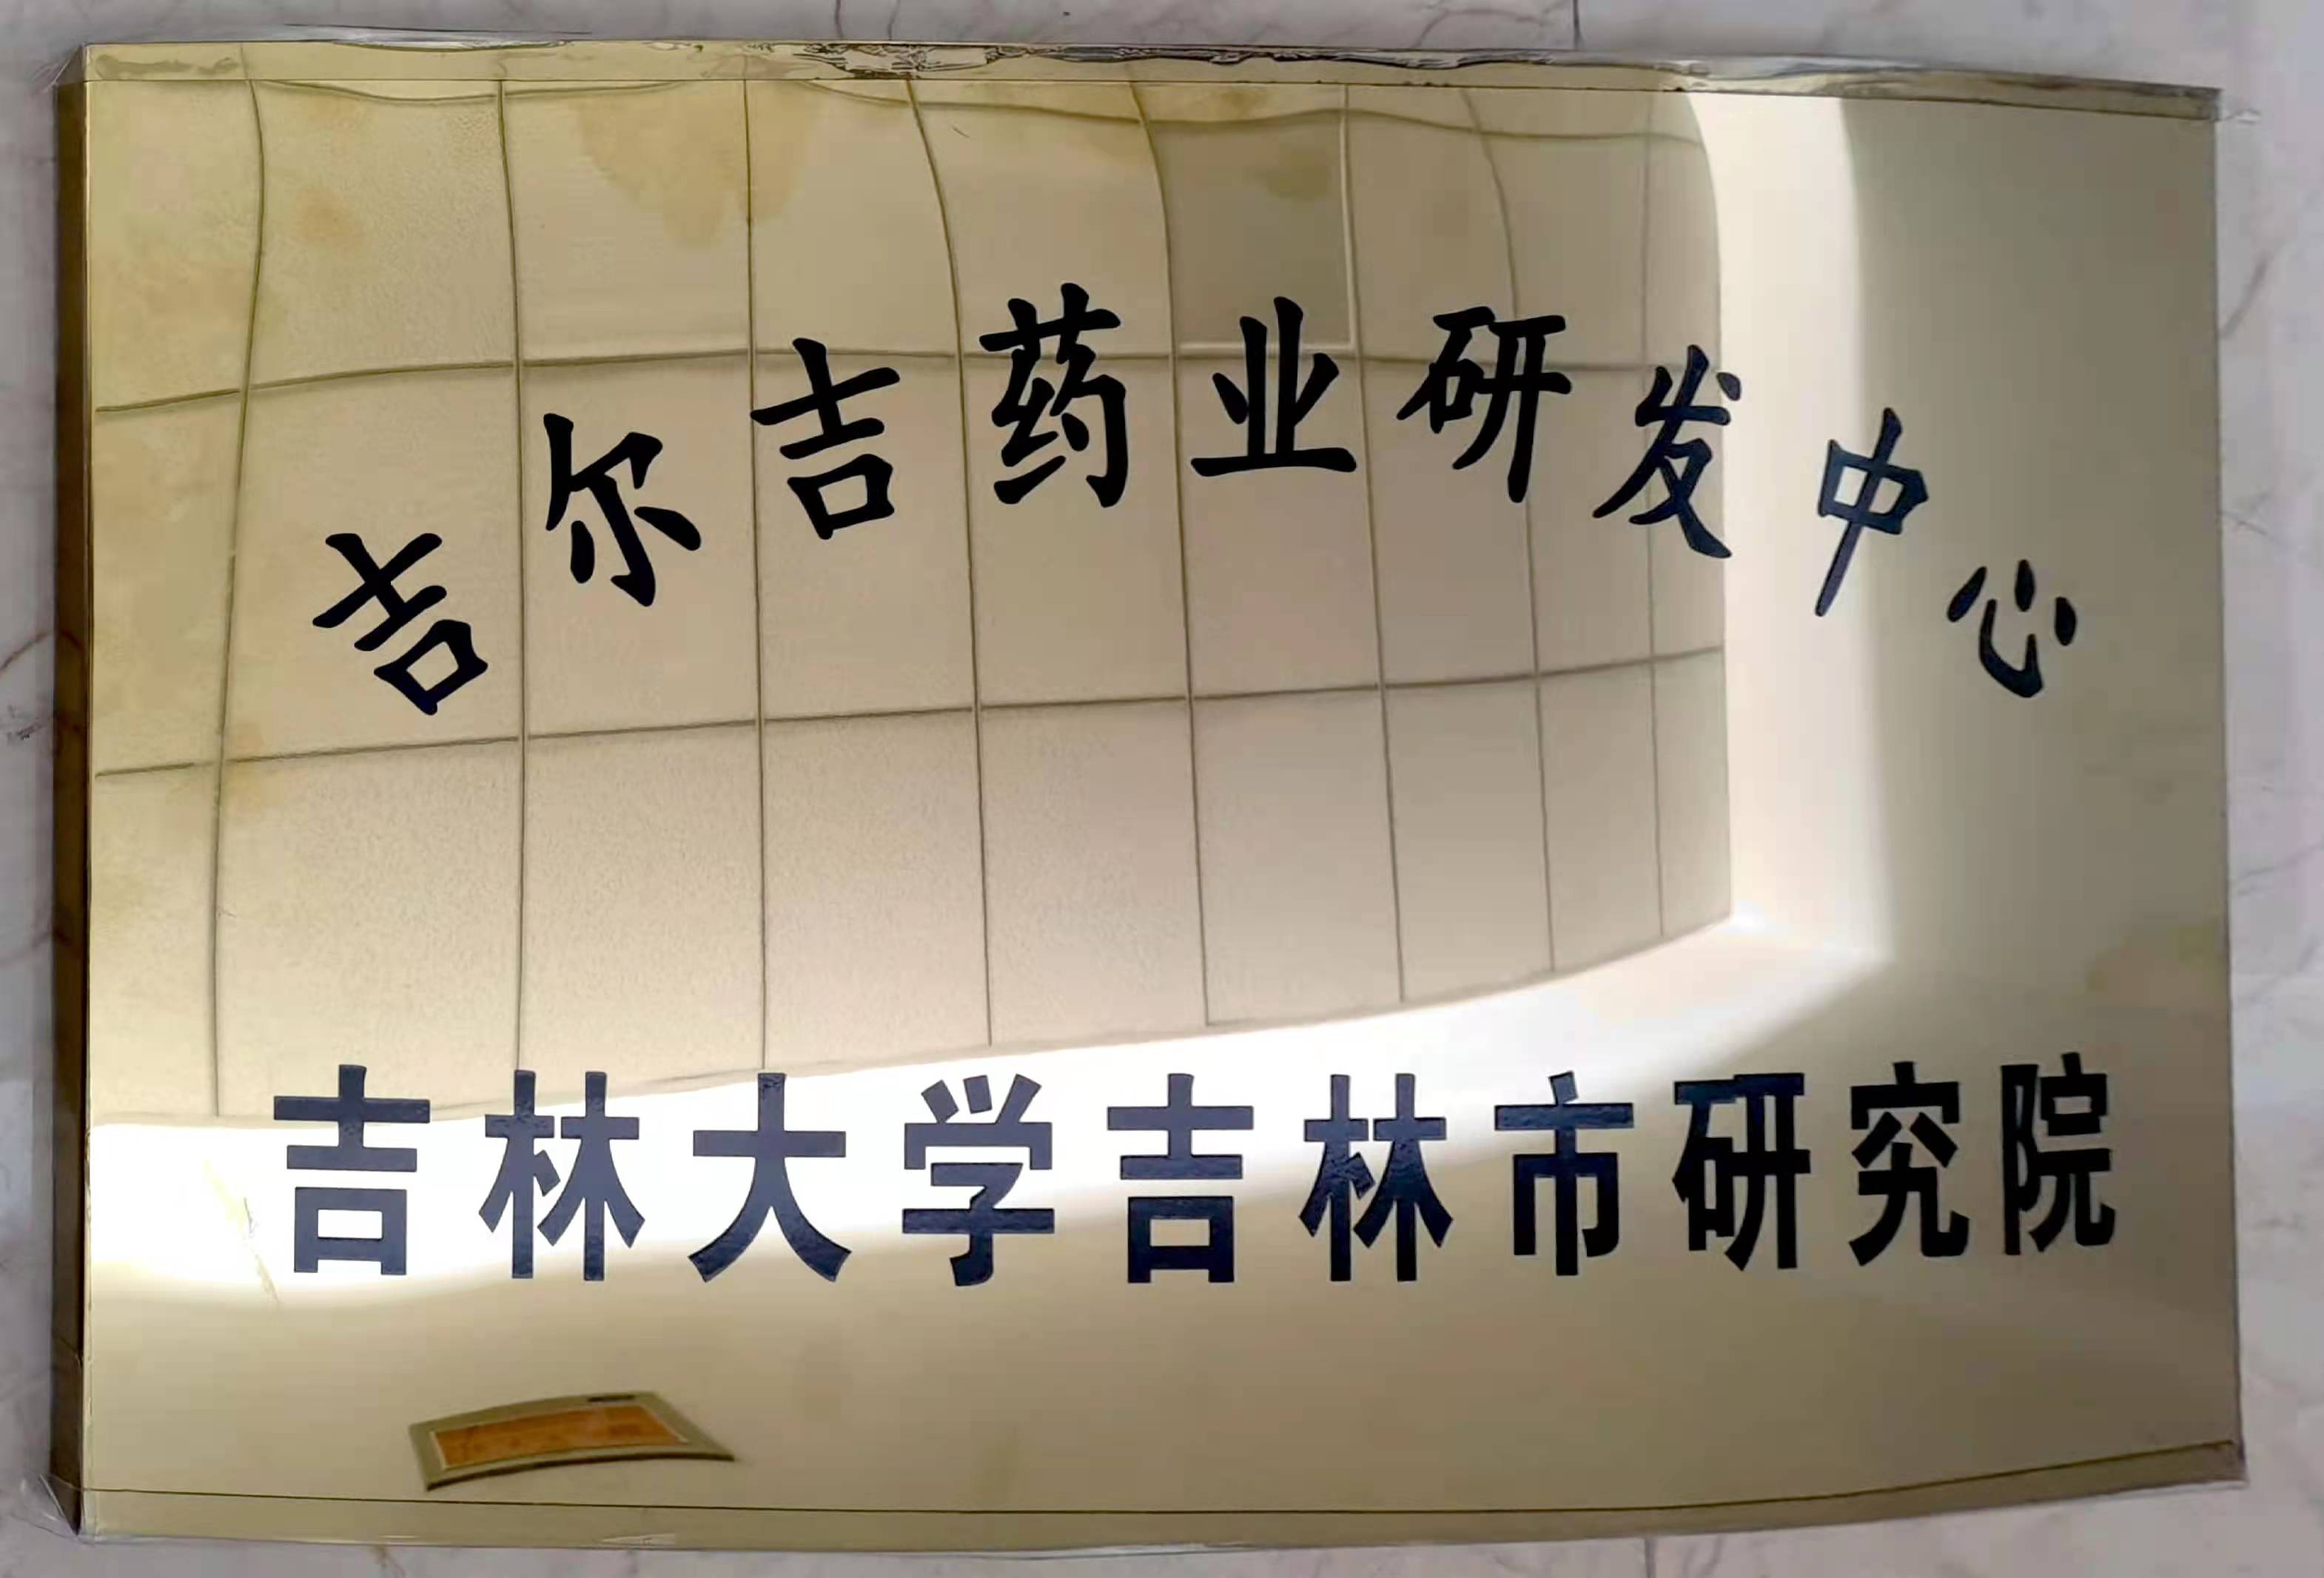 吉尔吉药业研发中心
吉林大学吉林市研究院